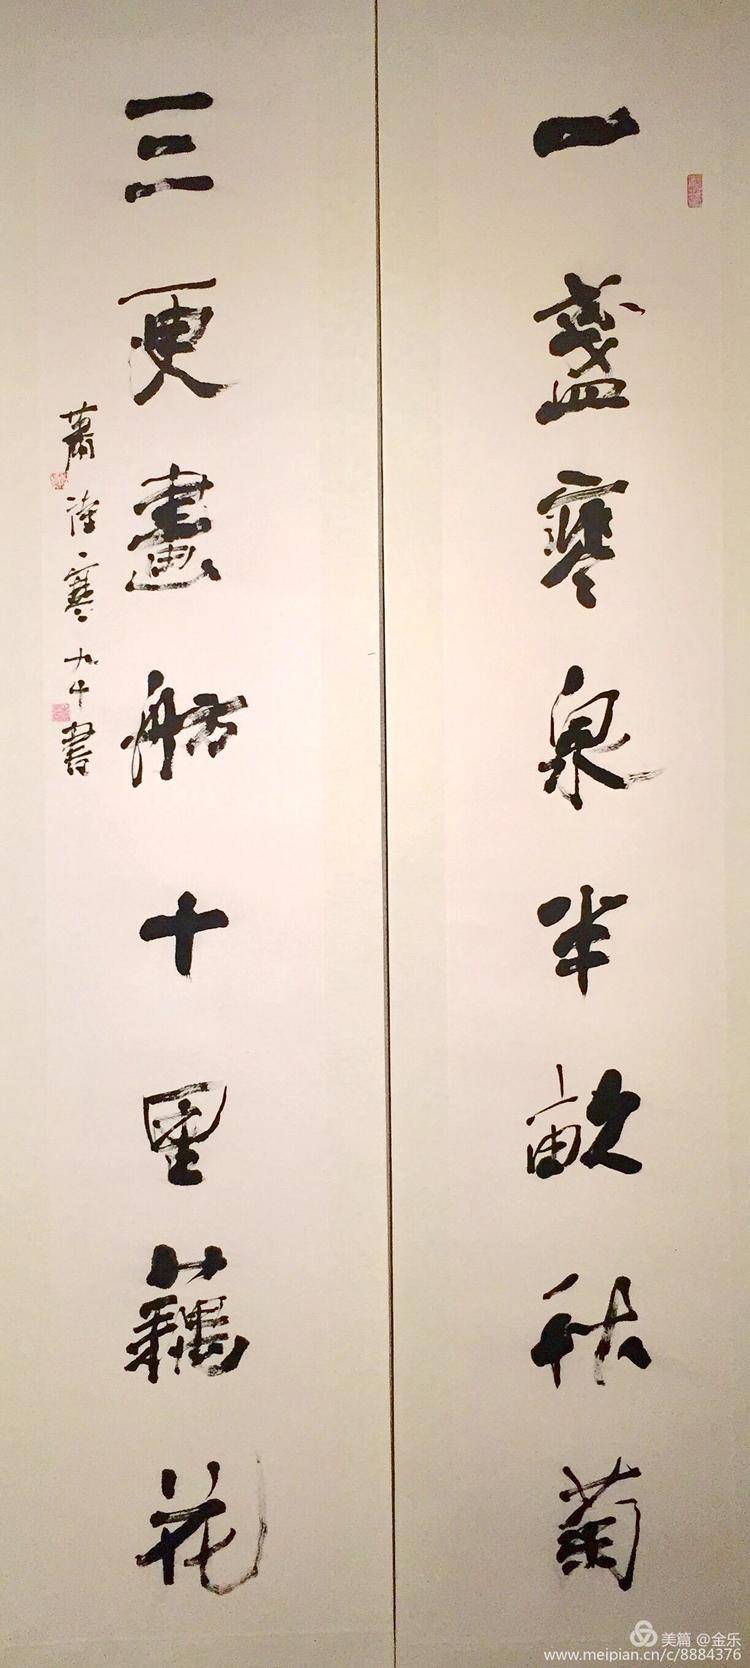 一盏寒泉半畝秋菊
三更畫舫十里藕花
蕭 寒九十書
美篇 @金乐
www.meipian.cn/c/8884376